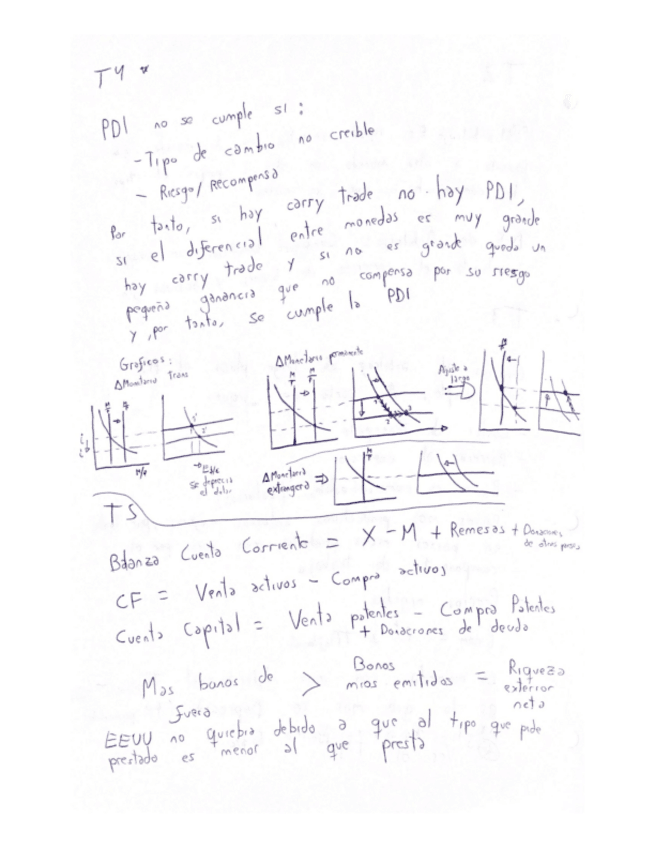 T4 *
PDI no se cumple si :
- Tipo de cambio no creible
- Riesgo/ Recompensa
Por tanto, si hay carry trade no hay PDI,
si el diferencial entre monedas es muy grande
hay carry trade y si no es grande queda un
pequeña ganancia que no compensa por su riesgo
y, por tanto, se cumple la PDI
Graficos:
Δ Monetario Trans
Δ Monetario permanente
Ajuste a largo
M/P
Se deprecia el dolar
Δ Monetaria extrangera ⇒
T5
Balanza Cuenta Corriente = X - M + Remesas + Donaciones de otros países
CF = Venta activos - Compra activos
Cuenta Capital = Venta patentes - Compra Patentes
+ Donaciones de deuda
Mas bonos de fuera > Bonos mios emitidos = Riqueza exterior neta
EEUU no quiebra debido a que al tipo que pide
prestado es menor al que presta